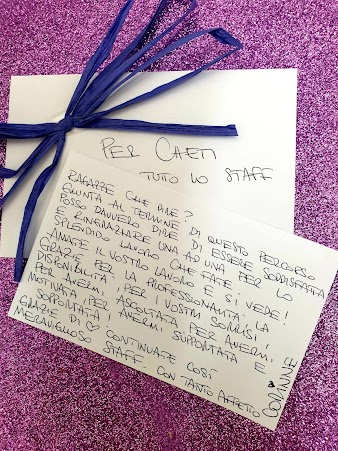 PER CHETI
TUTTO LO STAFF
RAGAZZE CHE DIRE?
GIUNTA AL TERMINE DI QUESTO PERCORSO
POSSO DAVVERO DIRE DI ESSERE SODDISFATTA
E RINGRAZIARE UNA AD UNA PER LO
SPLENDIDO LAVORO CHE FATE!
AMATE IL VOSTRO LAVORO E SI VEDE!
GRAZIE PER LA PROFESSIONALITÀ, LA
DISPONIBILITÀ, PER I VOSTRI SORRISI,
PER AVERMI ASCOLTATA, PER AVERMI
MOTIVATA, PER AVERMI SUPPORTATA E
SOPPORTATA!
GRAZIE DI ♡ CONTINUATE COSÌ
MERAVIGLIOSO STAFF. CON TANTO AFFETTO
CORINNE